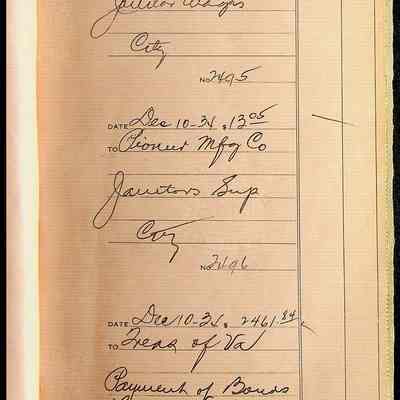 Janitor Wages
City
No 2495
DATE Dec 10-34 $ 13 05
TO Pioneer Mfg Co
Janitors Sup
City
No 2496
DATE Dec 10-34 $ 2461.84
TO Treas of Va
Payment of Bonds